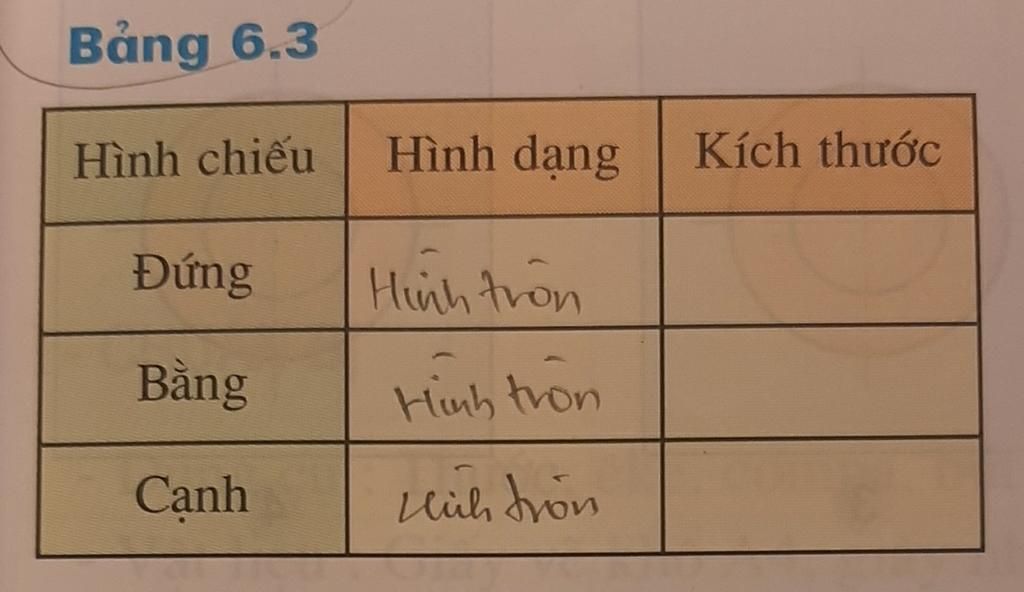 Bảng 6.3
Hình chiếu Hình dạng Kích thước
Đứng Hình tròn
Bằng Hình tròn
Cạnh Hình tròn